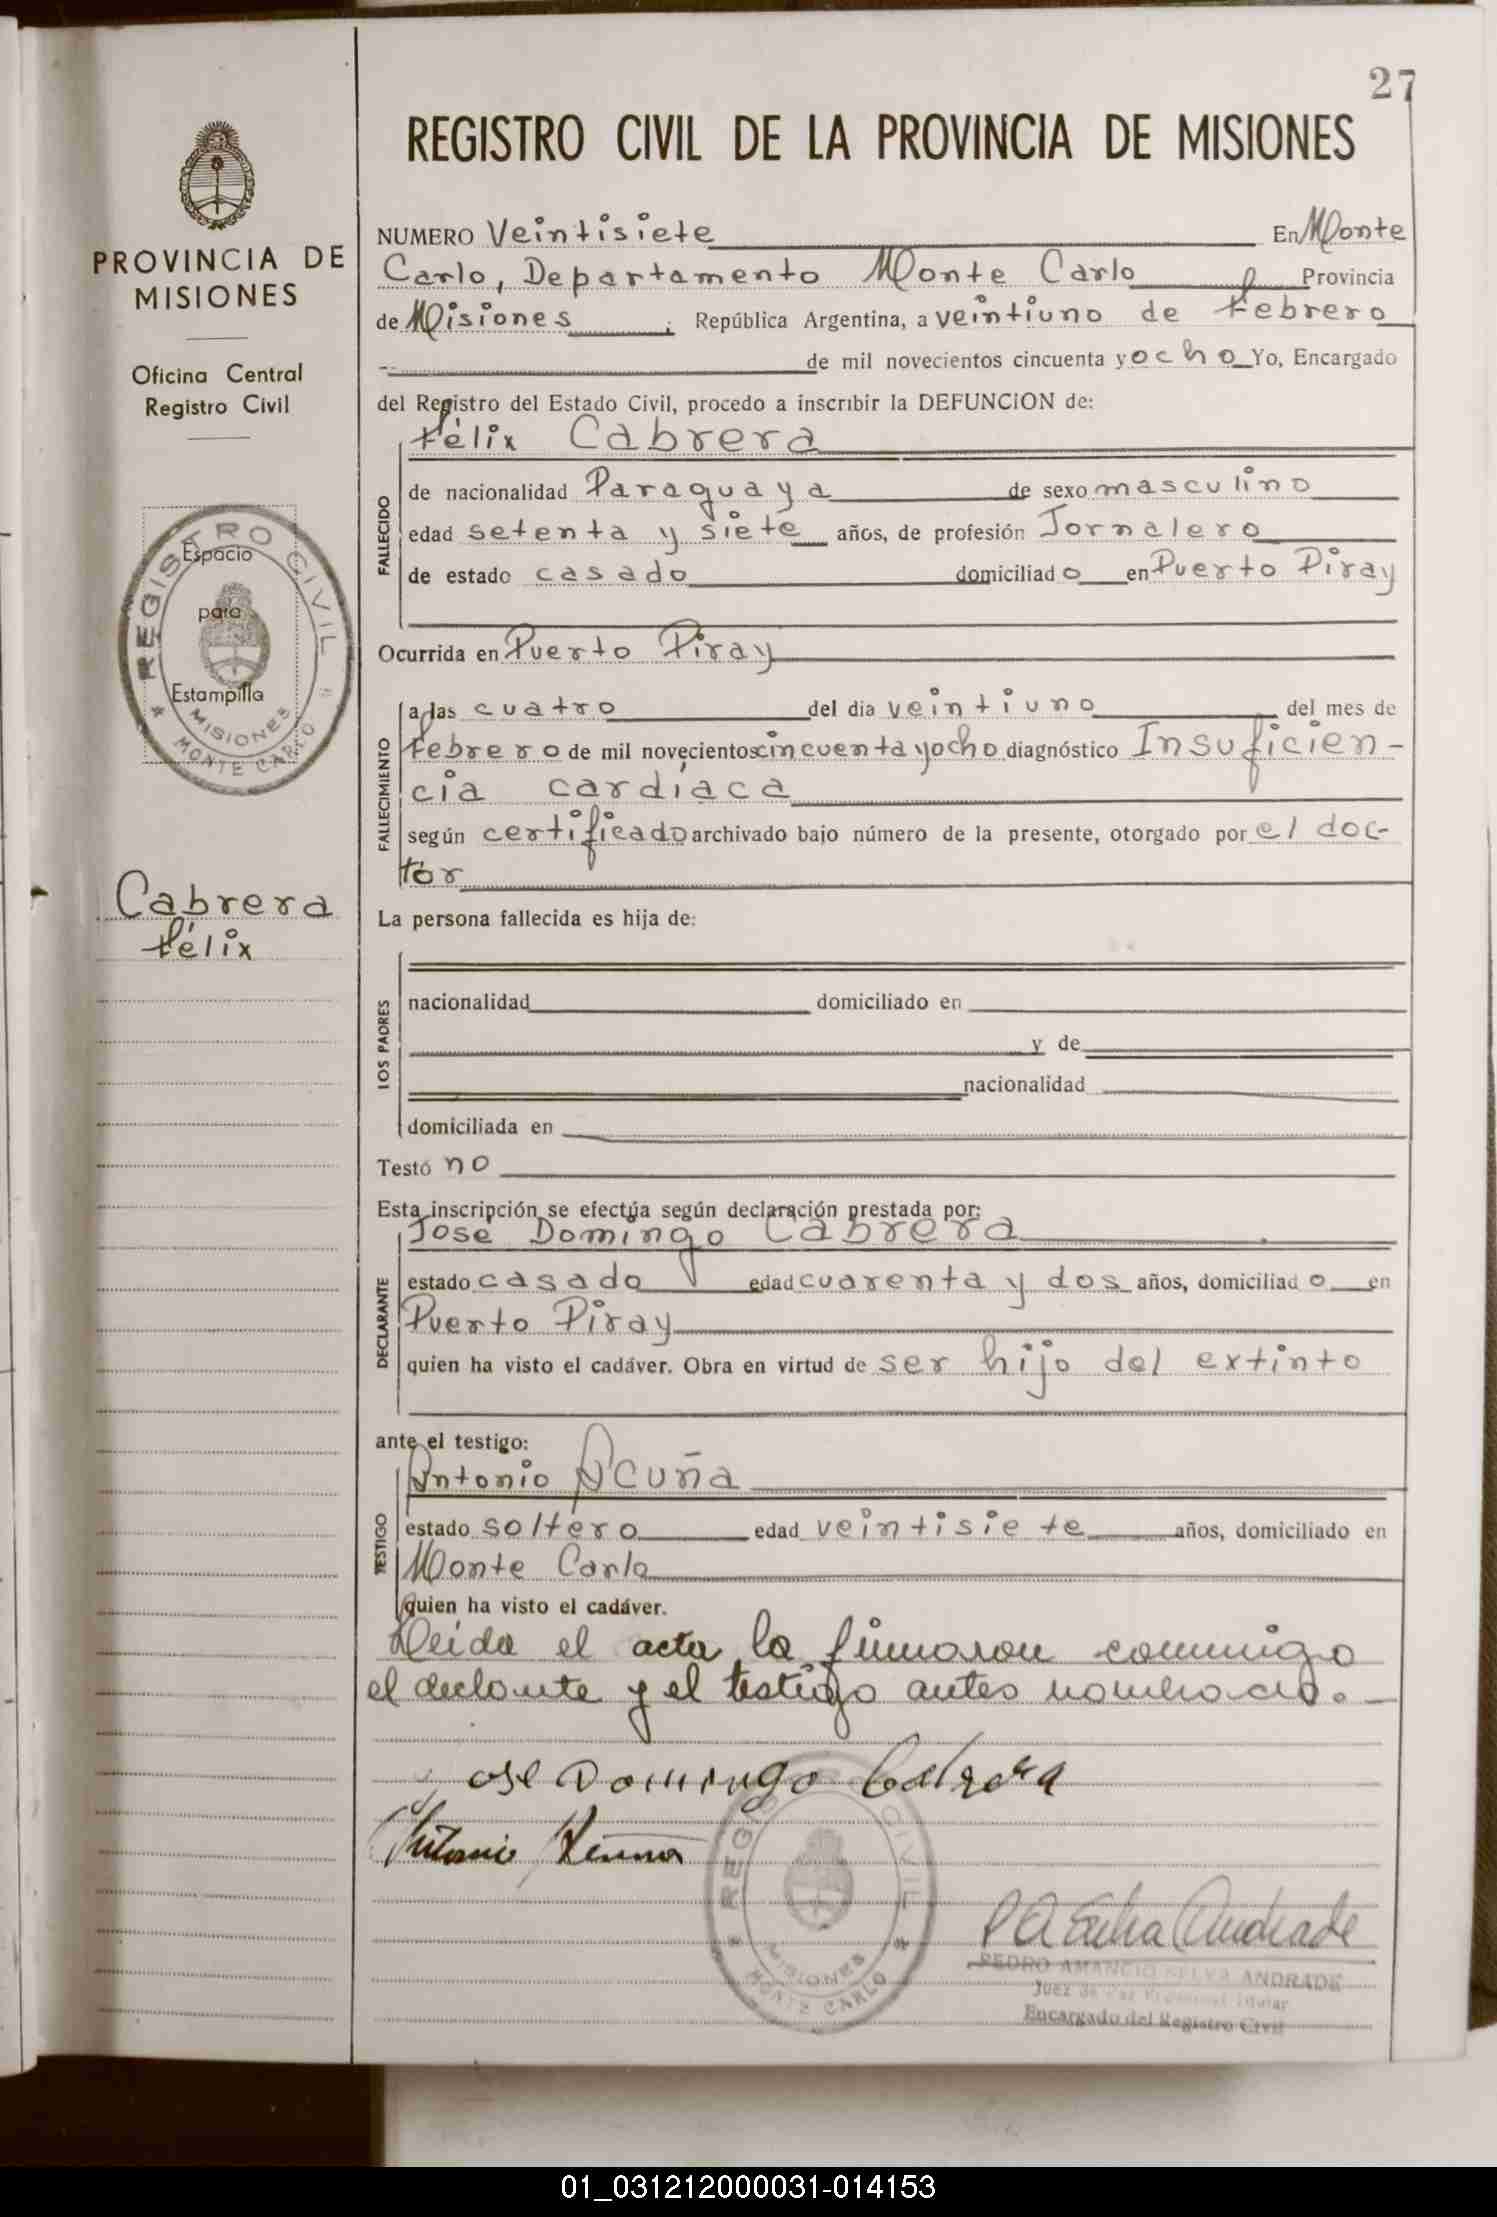 27
REGISTRO CIVIL DE LA PROVINCIA DE MISIONES
PROVINCIA DE
MISIONES
Oficina Central
Registro Civil
REGISTRO CIVIL
Espacio
para
Estampilla
MISIONES
* MONTE CARLO *
Cabrera
Félix
NUMERO Veintisiete En Monte
Carlo, Departamento Monte Carlo Provincia
de Misiones ; República Argentina, a veintiuno de Febrero
de mil novecientos cincuenta y ocho Yo, Encargado
del Registro del Estado Civil, procedo a inscribir la DEFUNCION de:
Félix Cabrera
FALLECIDO
de nacionalidad Paraguaya de sexo masculino
edad setenta y siete años, de profesión Jornalero
de estado casado domiciliado en Puerto Piray
Ocurrida en Puerto Piray
FALLECIMIENTO
a las cuatro del dia veintiuno del mes de
Febrero de mil novecientos cincuenta y ocho diagnóstico Insuficien-
cia cardíaca
según certificado archivado bajo número de la presente, otorgado por el doc-
tor
La persona fallecida es hija de:
LOS PADRES
nacionalidad domiciliado en
y de
nacionalidad
domiciliada en
Testó no
Esta inscripción se efectúa según declaración prestada por:
José Domingo Cabrera
DECLARANTE
estado casado edad cuarenta y dos años, domiciliado en
Puerto Piray
quien ha visto el cadáver. Obra en virtud de ser hijo del extinto
ante el testigo:
Antonio Acuña
TESTIGO
estado soltero edad veintisiete años, domiciliado en
Monte Carlo
quien ha visto el cadáver.
Leída el acta la firmaron conmigo
el declarante y el testigo antes nombrado.-
Jose Domingo Cabrera
Antonio Acuña
REGISTRO CIVIL
MISIONES
* MONTE CARLO *
P A Selva Andrade
PEDRO AMANCIO SELVA ANDRADE
Juez de Paz Titular
Encargado del Registro Civil
01_031212000031-014153